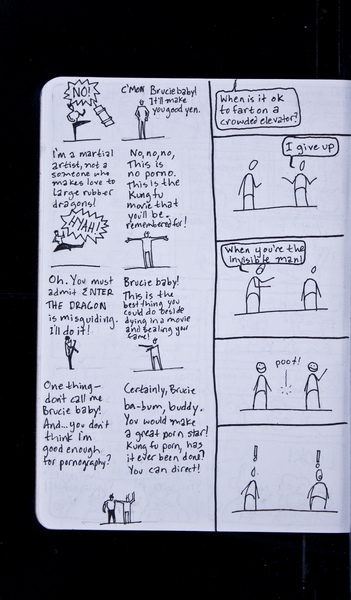 NO!
C'MON Brucie baby!
It'll make
you good yen.
I'm a martial
artist, not a
someone who
makes love to
large rubber
dragons!
HYAH!
No, no, no,
This is
no porno.
This is the
Kung fu
movie that
you'll be
remembered for!
Oh. You must
admit ENTER
THE DRAGON
is misguiding.
I'll do it!
Brucie baby!
This is the
best thing you
could do beside
dying in a movie
and sealing your
fame!
One thing-
don't call me
Brucie baby!
And... you don't
think I'm
good enough
for pornography?
Certainly, Brucie
ba-bum, buddy.
You would make
a great porn star!
Kung fu porn, has
it ever been done?
You can direct!
When is it ok
to fart on a
crowded elevator?
I give up
When you're the
invisible man!
poot!
!
!